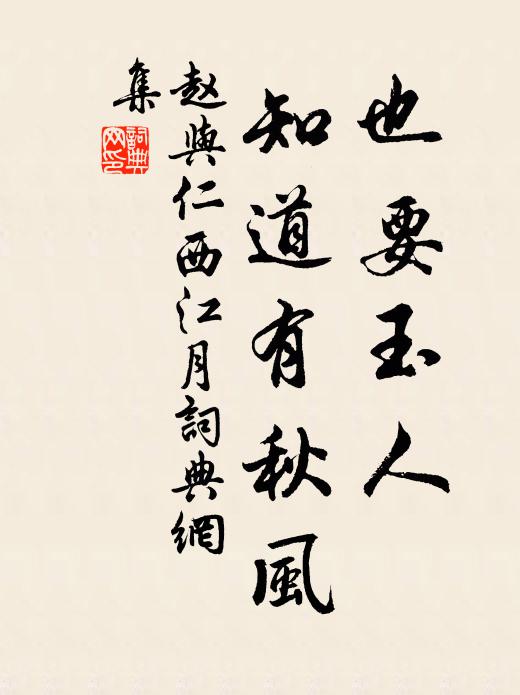 也要玉人
知道有秋風
赵與仁西江月詞典網
集
詞典
网印